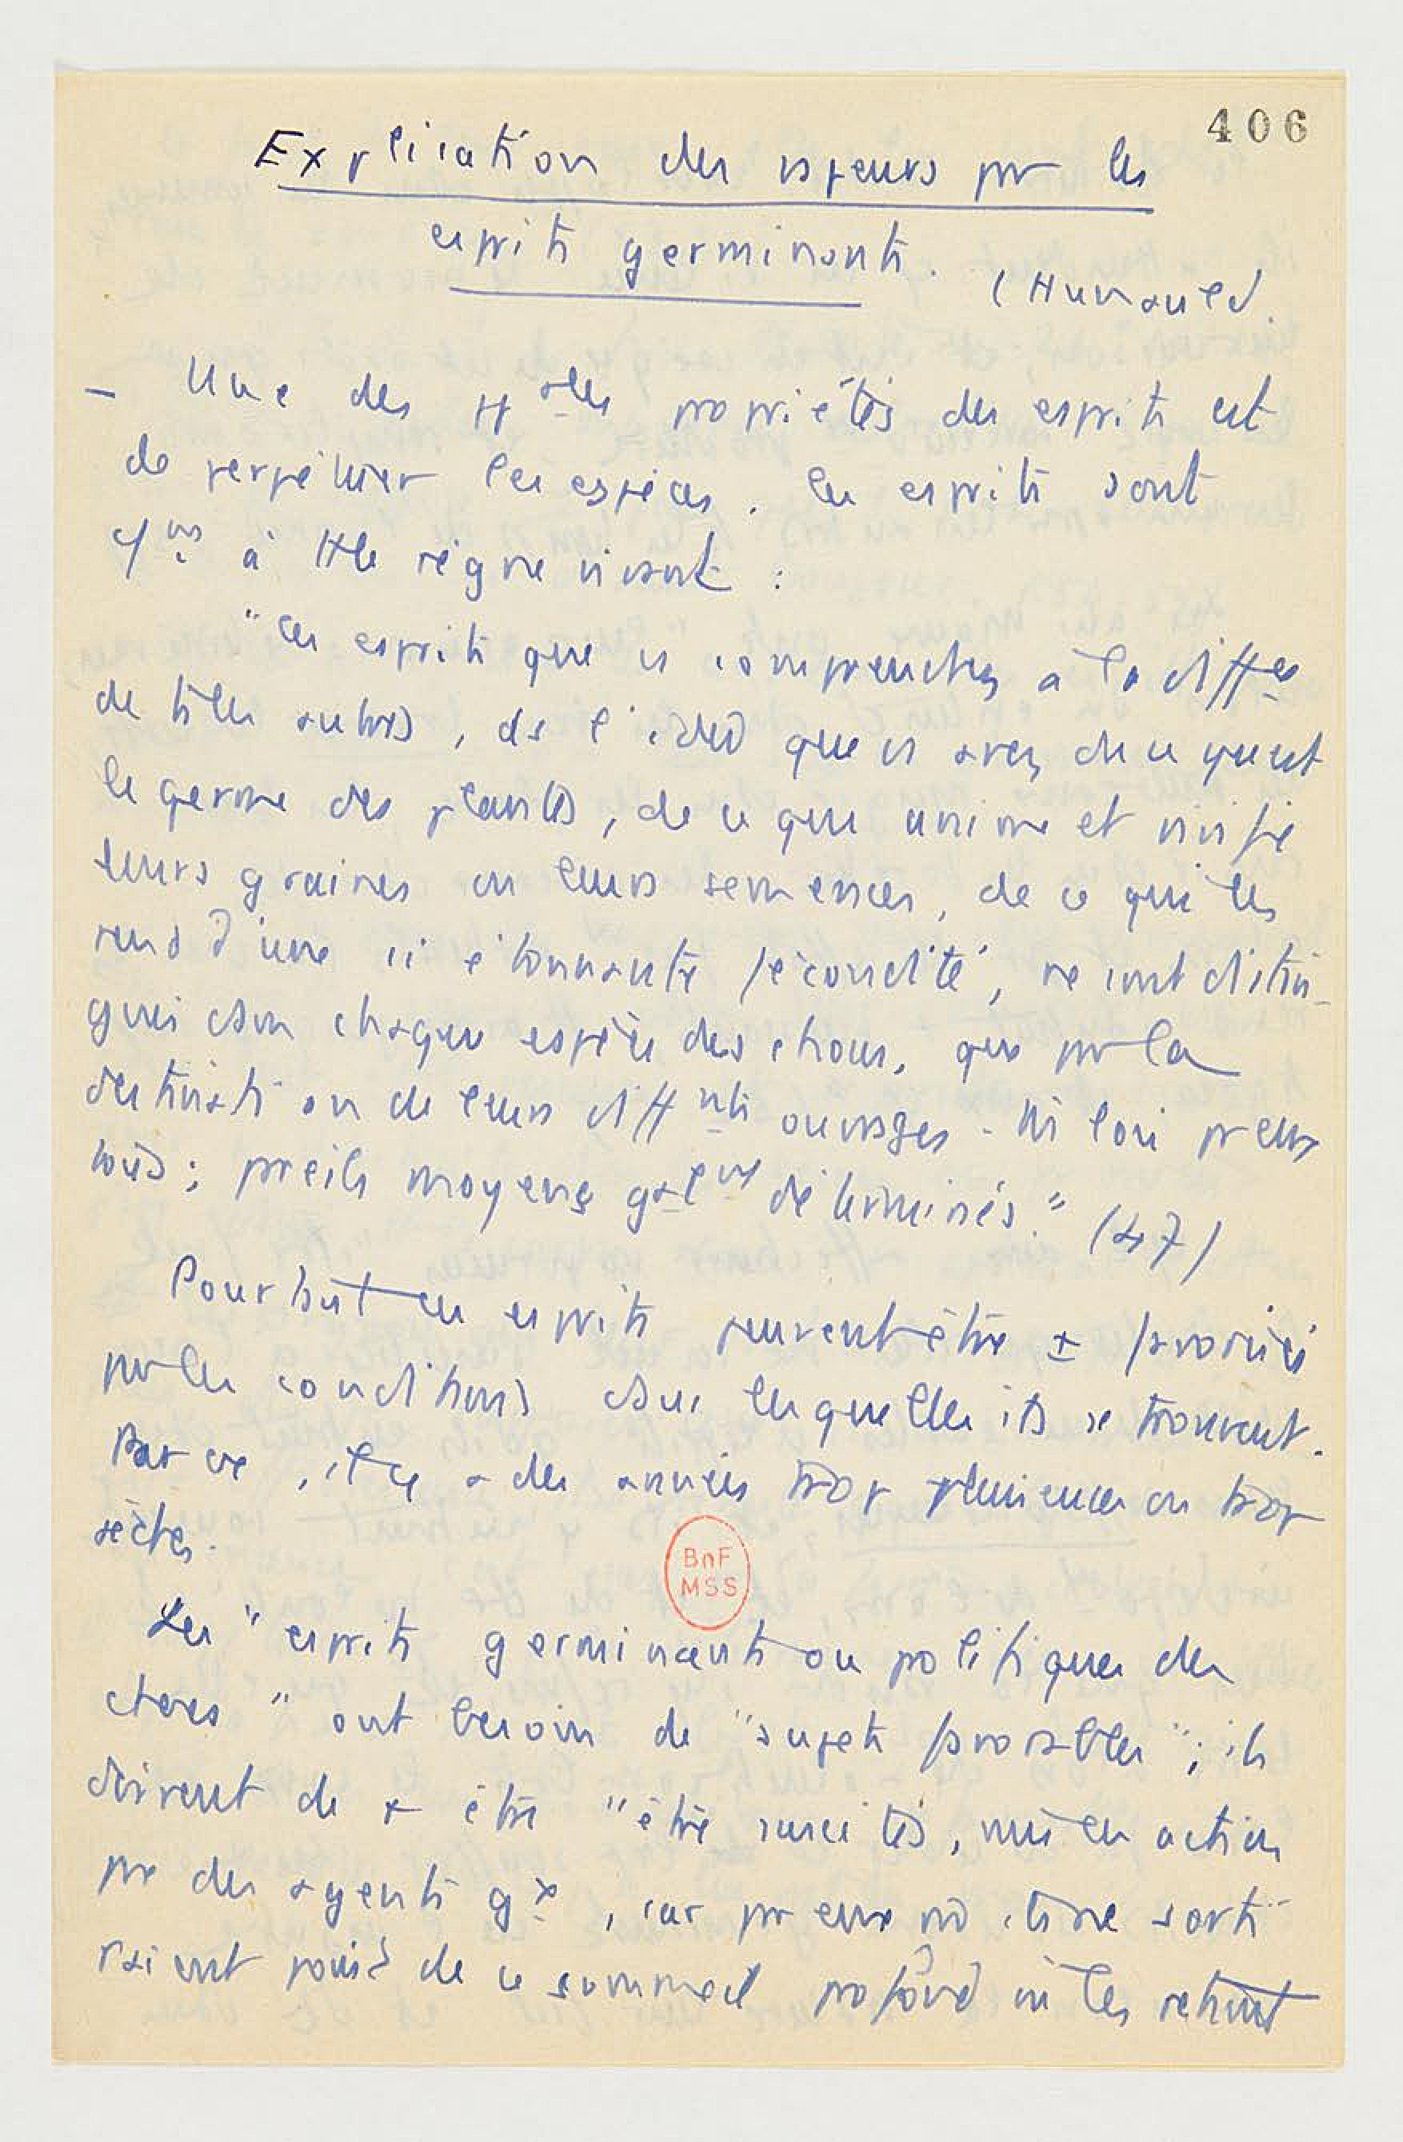 406
Explication des vapeurs par les
esprits germinants. (Hunauld).
- Une des propriétés des esprits est
de perpétuer les espèces. Les esprits sont
à tte le règne vivant :
"Ces esprits que vs comprendrez à la diffce
de ts les autres, ds l'idée que vs avez de ce qu'est
le germe des plantes, de ce qui anime et vivifie
leurs graines ou leurs semences, de ce qui les
rend d'une si étonnante fécondité, ne sont distin-
gués dans chaque espèce des choses, que par la
destination de leurs diffnts ouvrages - Ni loix pr eux
tous ; pareils moyens gxlmt déterminés." (47)
Pourtant ces esprits peuvent être ± favorisés
par les conditions dans lesquelles ils se trouvent.
Par ex, il y a des années trop pluvieuses ou trop
sèches.
Les "esprits germinants ou polifiques des
choses" ont besoin de "sujets favorables" ; ils
doivent de + être "être suscités, mis en action
par des agents gx, car par eux mê ils ne sorti
raient jamais de ce sommeil profond où les retient
BnF
MSS